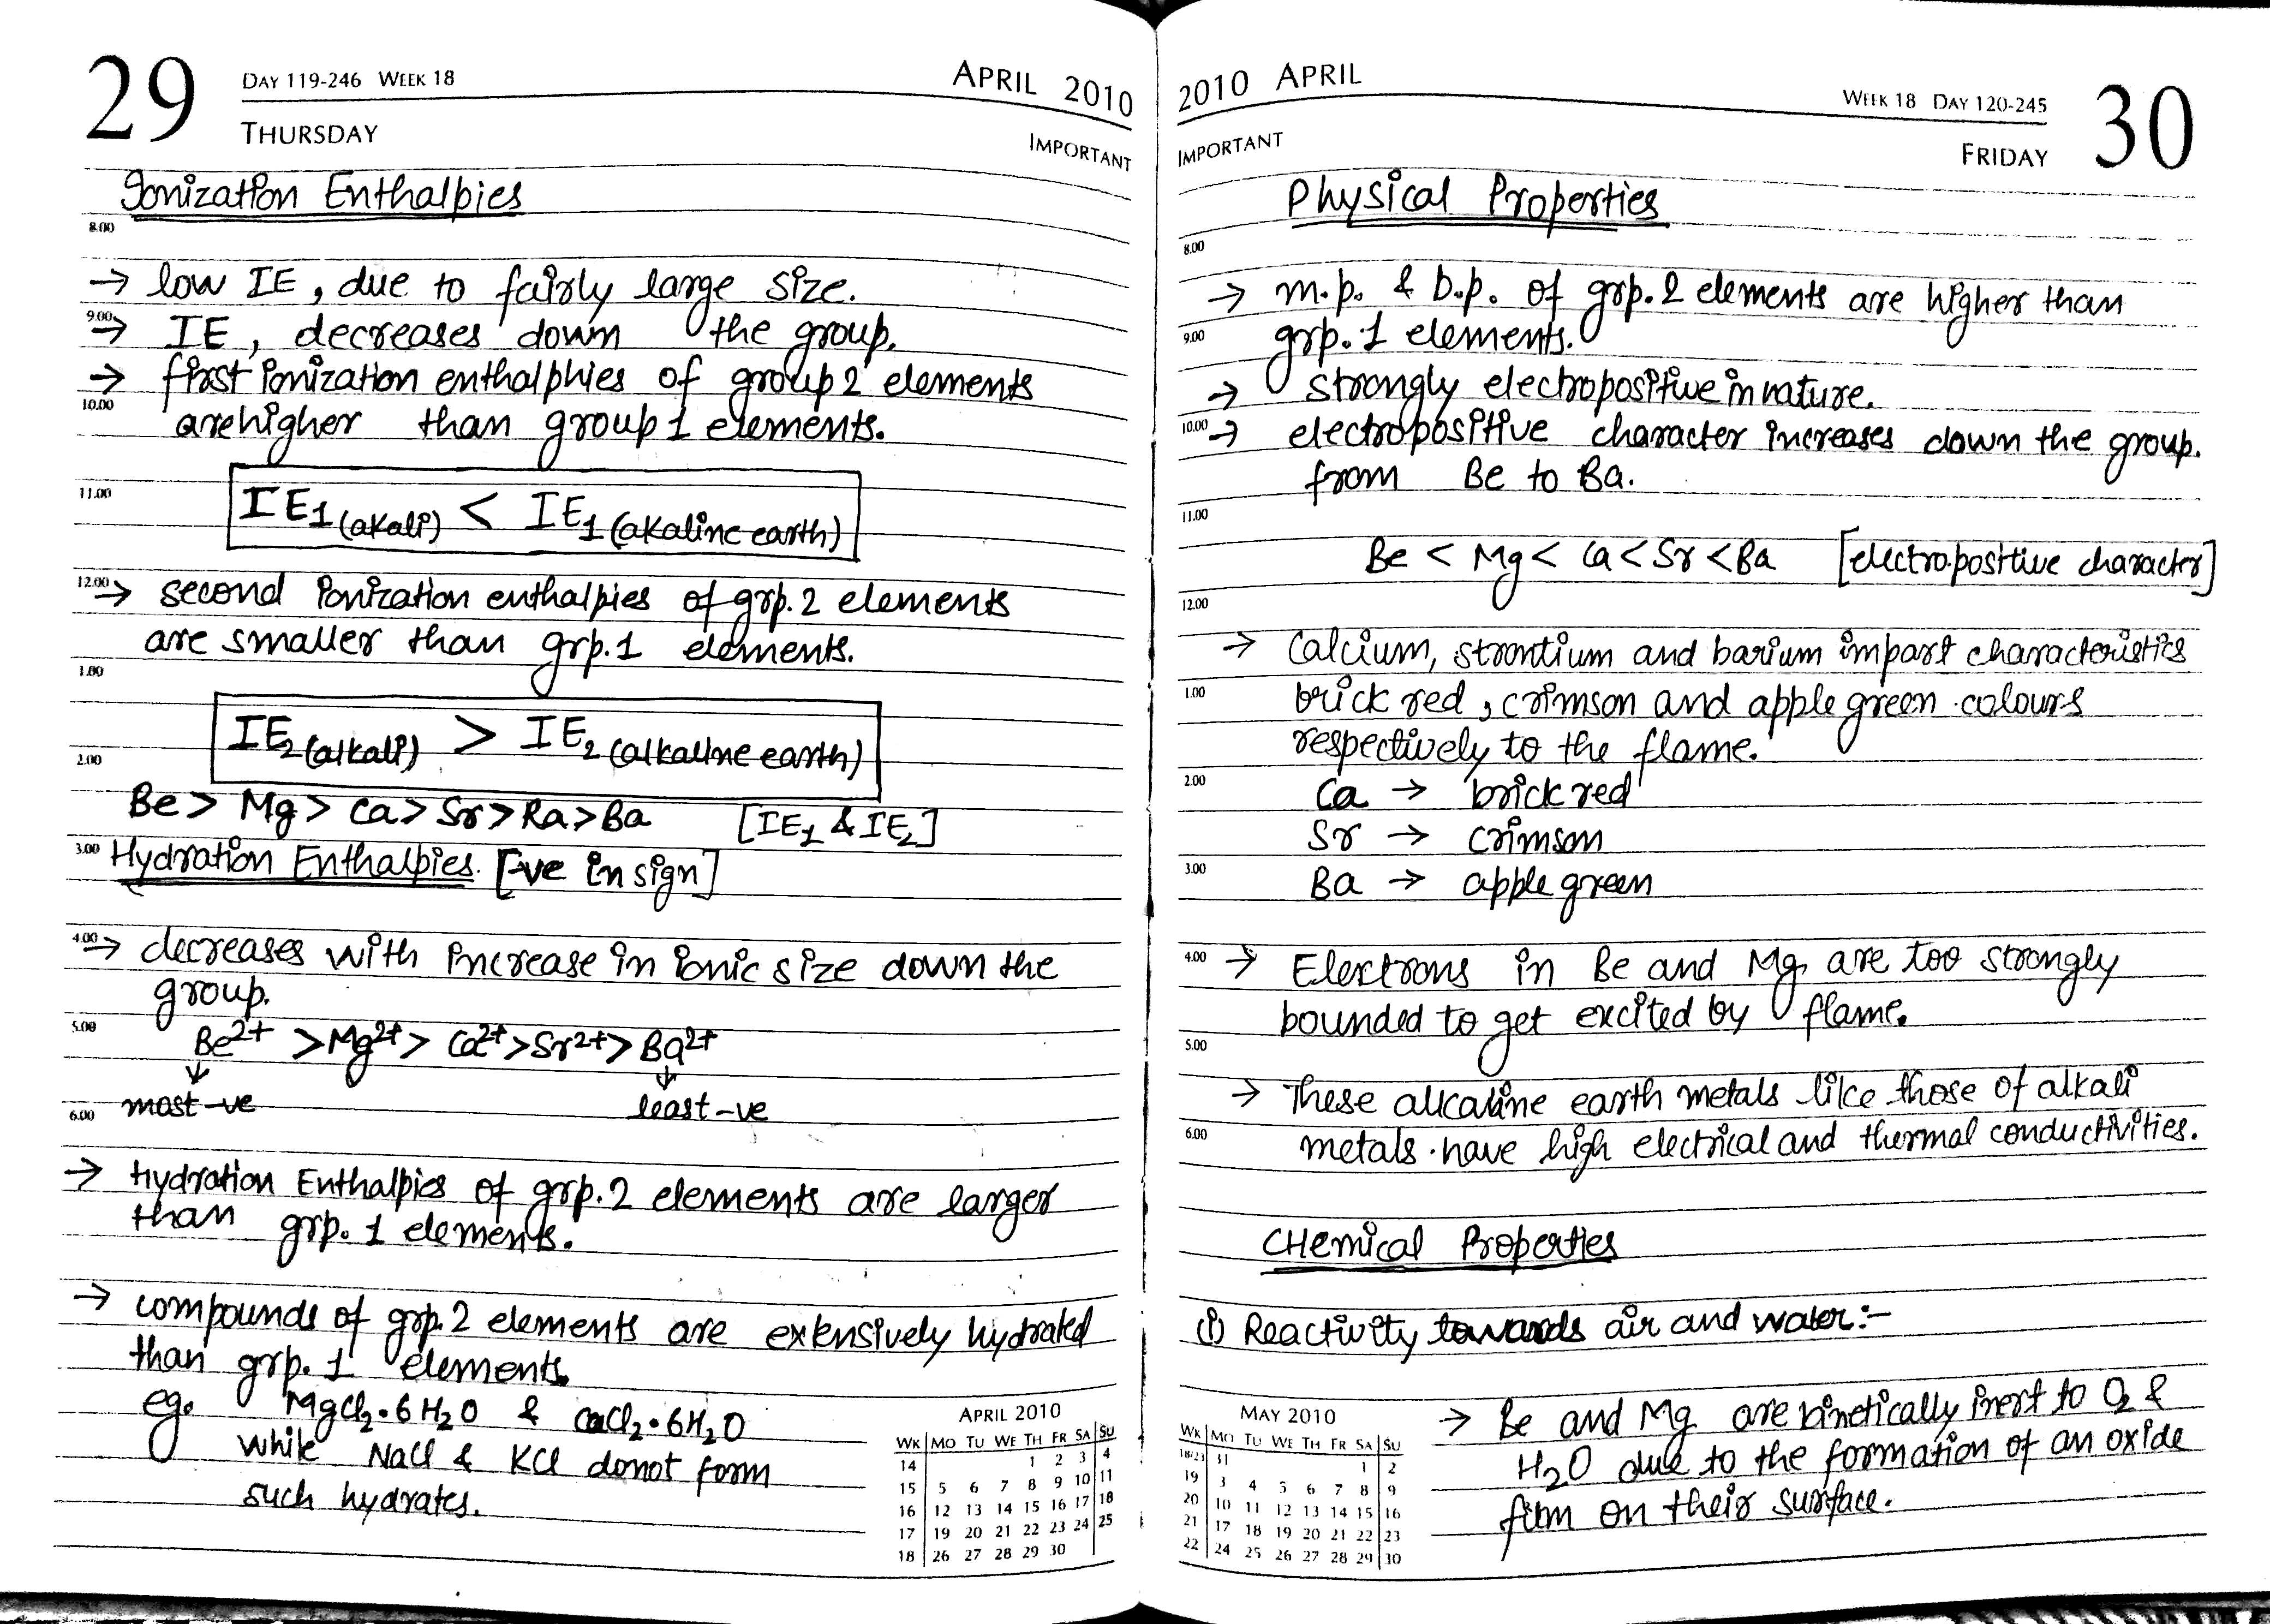 29
DAY 119-246 WEEK 18
APRIL 2010
THURSDAY
IMPORTANT
Ionization Enthalpies
8.00
→ low IE, due to fairly large size.
9.00
→ IE, decreases down the group.
→ first ionization enthalphies of group 2 elements
10.00
are higher than group 1 elements.
11.00
IE1 (akali) < IE1 (akaline earth)
12.00
→ second ionization enthalpies of grp. 2 elements
are smaller than grp. 1 elements.
1.00
IE2 (alkali) > IE2 (alkaline earth)
2.00
Be > Mg > Ca > Sr > Ra > Ba [IE1 & IE2]
3.00
Hydration Enthalpies. [-ve in sign]
4.00
→ decreases with increase in ionic size down the
group.
5.00
Be2+ > Mg2+ > Ca2+ > Sr2+ > Ba2+
↓ ↓
6.00
most -ve least -ve
→ Hydration Enthalpies of grp. 2 elements are larger
than grp. 1 elements.
→ compounds of grp. 2 elements are extensively hydrated
than grp. 1 elements.
eg. MgCl2.6H2O & CaCl2.6H2O
while NaCl & KCl donot form
such hydrates.
APRIL 2010
WK MO TU WE TH FR SA SU
14 1 2 3 4
15 5 6 7 8 9 10 11
16 12 13 14 15 16 17 18
17 19 20 21 22 23 24 25
18 26 27 28 29 30
2010 APRIL
WEEK 18 DAY 120-245
30
IMPORTANT
FRIDAY
Physical Properties
8.00
→ m.p. & b.p. of grp. 2 elements are higher than
9.00
grp. 1 elements.
→ strongly electropositive in nature.
10.00
→ electropositive character increases down the group.
from Be to Ba.
11.00
Be < Mg < Ca < Sr < Ba [electropositive character]
12.00
→ Calcium, strontium and barium impart characteristics
1.00
brick red, crimson and apple green colours
respectively to the flame.
2.00
Ca → brick red
Sr → crimson
3.00
Ba → apple green
4.00
→ Electrons in Be and Mg are too strongly
bounded to get excited by flame.
5.00
→ These alkaline earth metals like those of alkali
6.00
metals have high electrical and thermal conductivities.
CHemical Properties
(i) Reactivity towards air and water:-
→ Be and Mg are kinetically inert to O2 &
H2O due to the formation of an oxide
film on their surface.
MAY 2010
WK MO TU WE TH FR SA SU
18/23 31 1 2
19 3 4 5 6 7 8 9
20 10 11 12 13 14 15 16
21 17 18 19 20 21 22 23
22 24 25 26 27 28 29 30